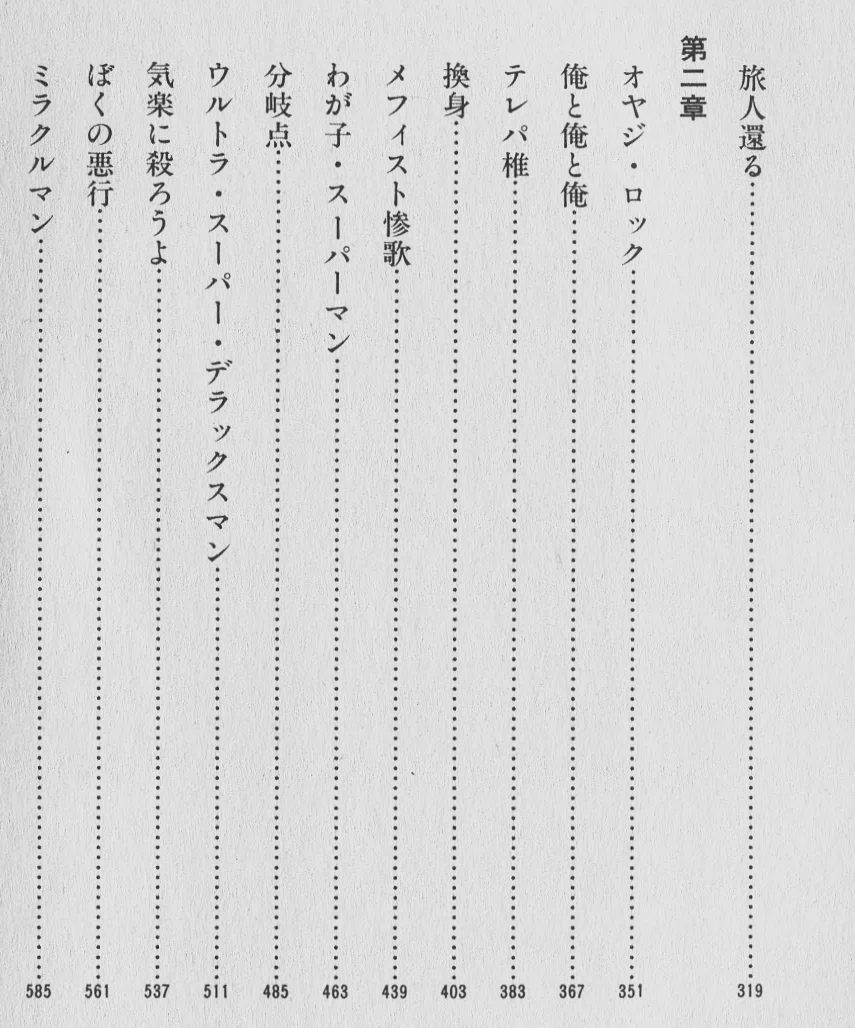 旅人還る……………319
第二章
オヤジ・ロック……………351
俺と俺と俺……………367
テレパ椎……………383
換身……………403
メフィスト惨歌……………439
わが子・スーパーマン……………463
分岐点……………485
ウルトラ・スーパー・デラックスマン……………511
気楽に殺ろうよ……………537
ぼくの悪行……………561
ミラクルマン……………585